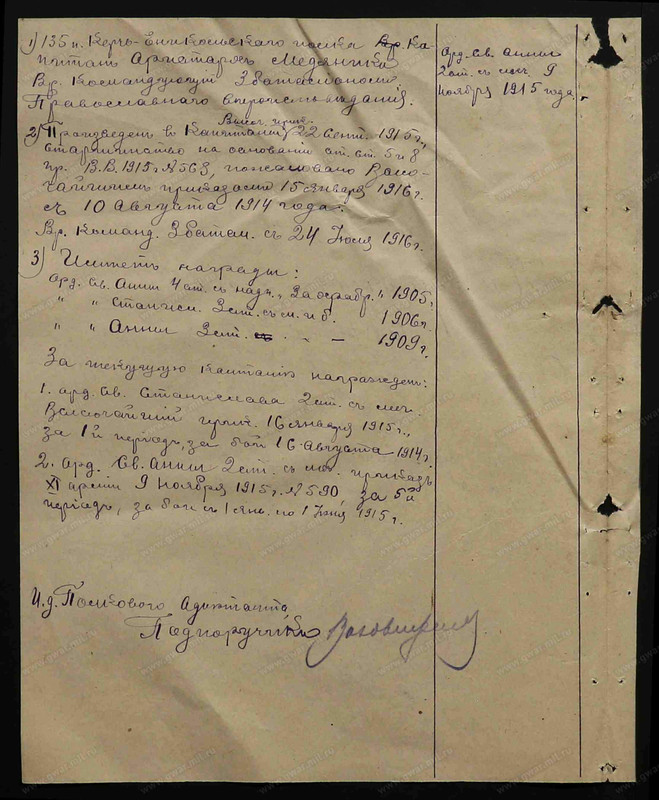 1) 135 п. Керчь-Еникольскаго полка Ка-
питанъ Аристархъ Медяник
Вр. Командующiй 3 баталiономъ.
Православнаго вероисповѣданiя.
Высоч. приж.
2) Произведенъ въ Капитаны 22 Сент. 1915 г.,
старшинство на основанiи ст. ст. 5 и 8
пр. В.В. 1915 г. № 563, пожаловано Высо-
чайшимъ приказомъ 15 января 1916 г.
съ 10 Августа 1914 года.
Вр. Команд. 3 батал. съ 24 Iюля 1916 г.
3) Имѣетъ награды:
Орд. Св. Анны 4 ст. съ надп. „За храбр." 1905 г.
" " Станисл. 3 ст. съ м. и б. 1906 г.
" " Анны 3 ст. - 1909 г.
За текущую кампанiю награжденъ:
1. орд. Св. Станислава 2 ст. съ меч.
Высочайшiй прик. 16 января 1915 г.,
за 1й перiодъ, за бой 16 Августа 1914 г.
2. Орд. Св. Анны 2 ст. съ меч. приказъ
XI армiи 9 Ноября 1915 г. № 590, за 5й
перiодъ, за бои съ 1 янв. по 1 Iюня 1915 г.
И. д. Полкового Адъютанта,
Подпоручикъ
Орд. Св. Анны
2 ст. съ меч. 9
ноября 1915 года.